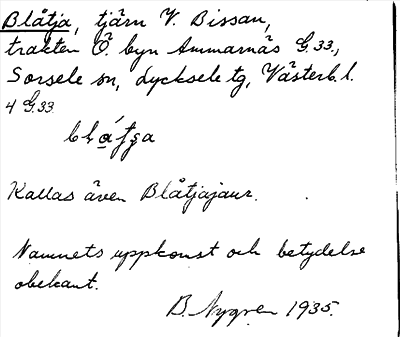 Blåtja, tjärn V. Bissan,
trakten Ö. byn Ammarnäs G.33.,
Sorsele sn, Lycksele tg, Västerb. l.
4 G.33.
Kallas även Blåtjajaur.
Namnets uppkomst och betydelse
obekant.
B. Nygren 1935.